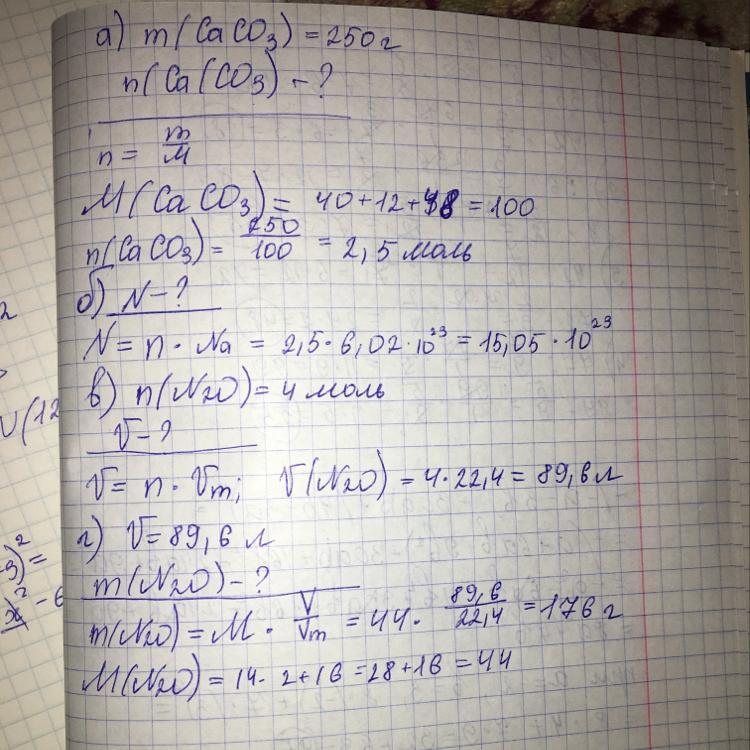 а) m(CaCO3) = 250г
n(Ca(CO3) - ?
n = m/M
M(CaCO3) = 40+12+48 = 100
n(CaCO3) = 250/100 = 2,5 моль
б) N - ?
N = n · Na = 2,5 · 6,02 · 10²³ = 15,05 · 10²³
в) n(N2O) = 4 моль
V - ?
V = n · Vm; V(N2O) = 4 · 22,4 = 89,6 л
г) V = 89,6 л
m(N2O) - ?
m(N2O) = M · V/Vm = 44 · 89,6/22,4 = 176 г
M(N2O) = 14 · 2 + 16 = 28 + 16 = 44